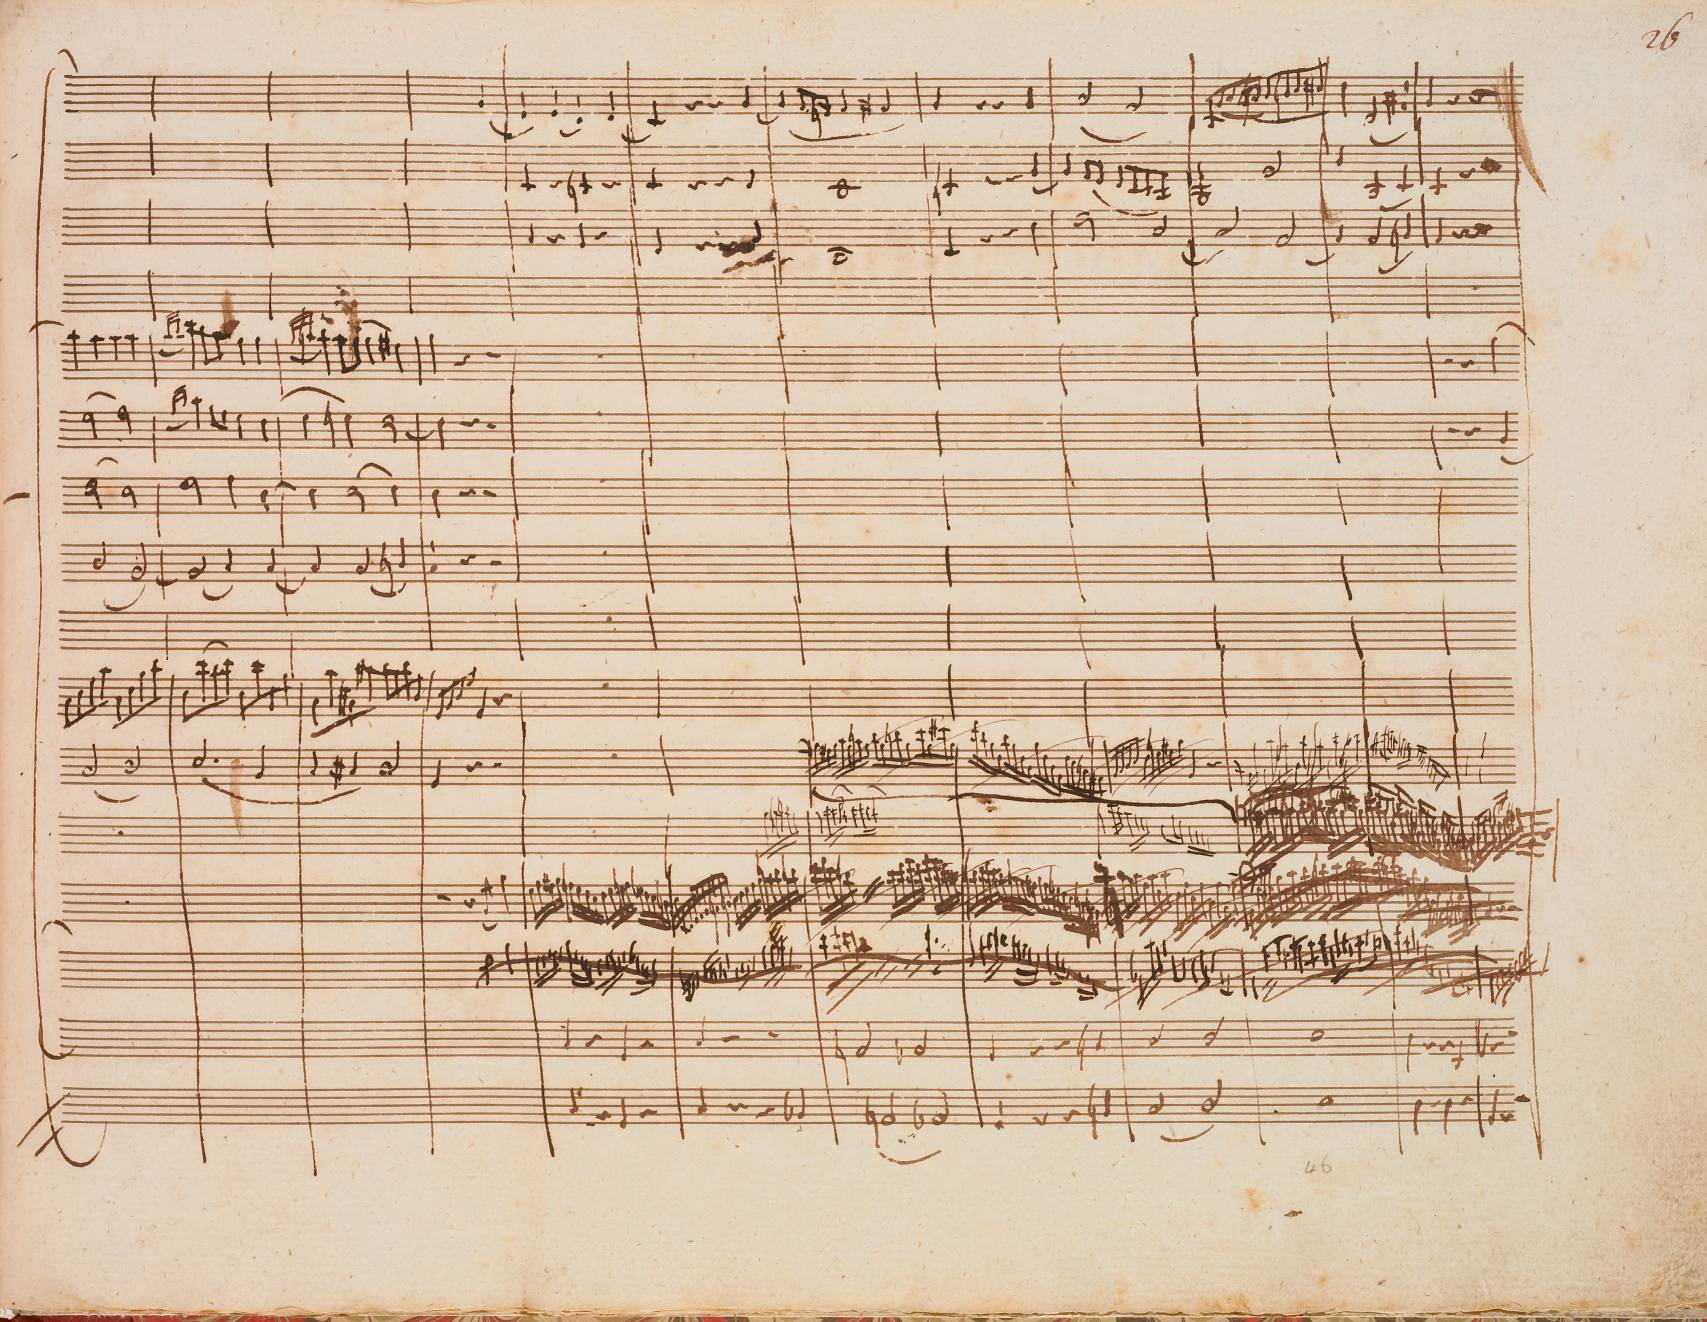 26
46